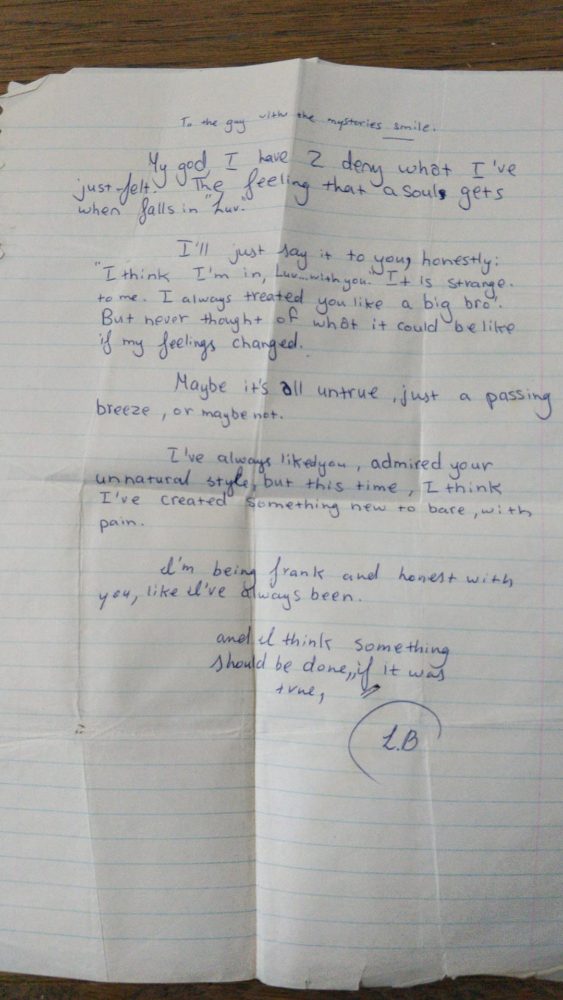 To the guy with the mysteries smile.
My god, I have 2 deny what I've
just felt. The feeling that a soul gets
when falls in "Luv."
I'll just say it to you, honestly:
"I think I'm in, Luv...with you." It is strange.
to me. I always treated you like a big bro'.
But never thought of what it could be like
if my feelings changed.
Maybe it's all untrue, just a passing
breeze, or maybe not.
I've always liked you, admired your
unnatural style, but this time, I think
I've created something new to bare, with
pain.
I'm being frank and honest with
you, like I've always been.
and I think something
should be done, if it was
true,
L.B